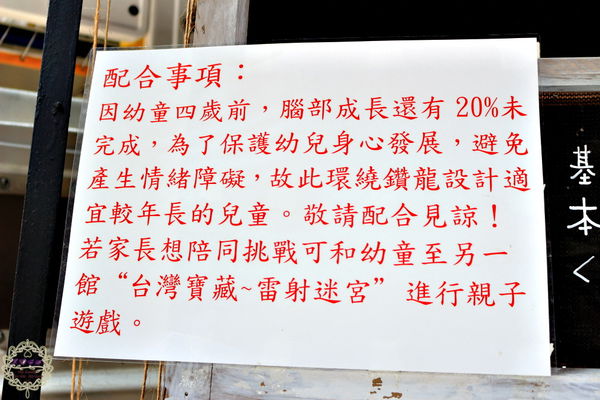 配合事項：
因幼童四歲前，腦部成長還有 20%未
完成，為了保護幼兒身心發展，避免
產生情緒障礙，故此環繞鑽龍設計適
宜較年長的兒童。敬請配合見諒！
若家長想陪同挑戰可和幼童至另一
館“台灣寶藏~雷射迷宮” 進行親子
遊戲。
基本